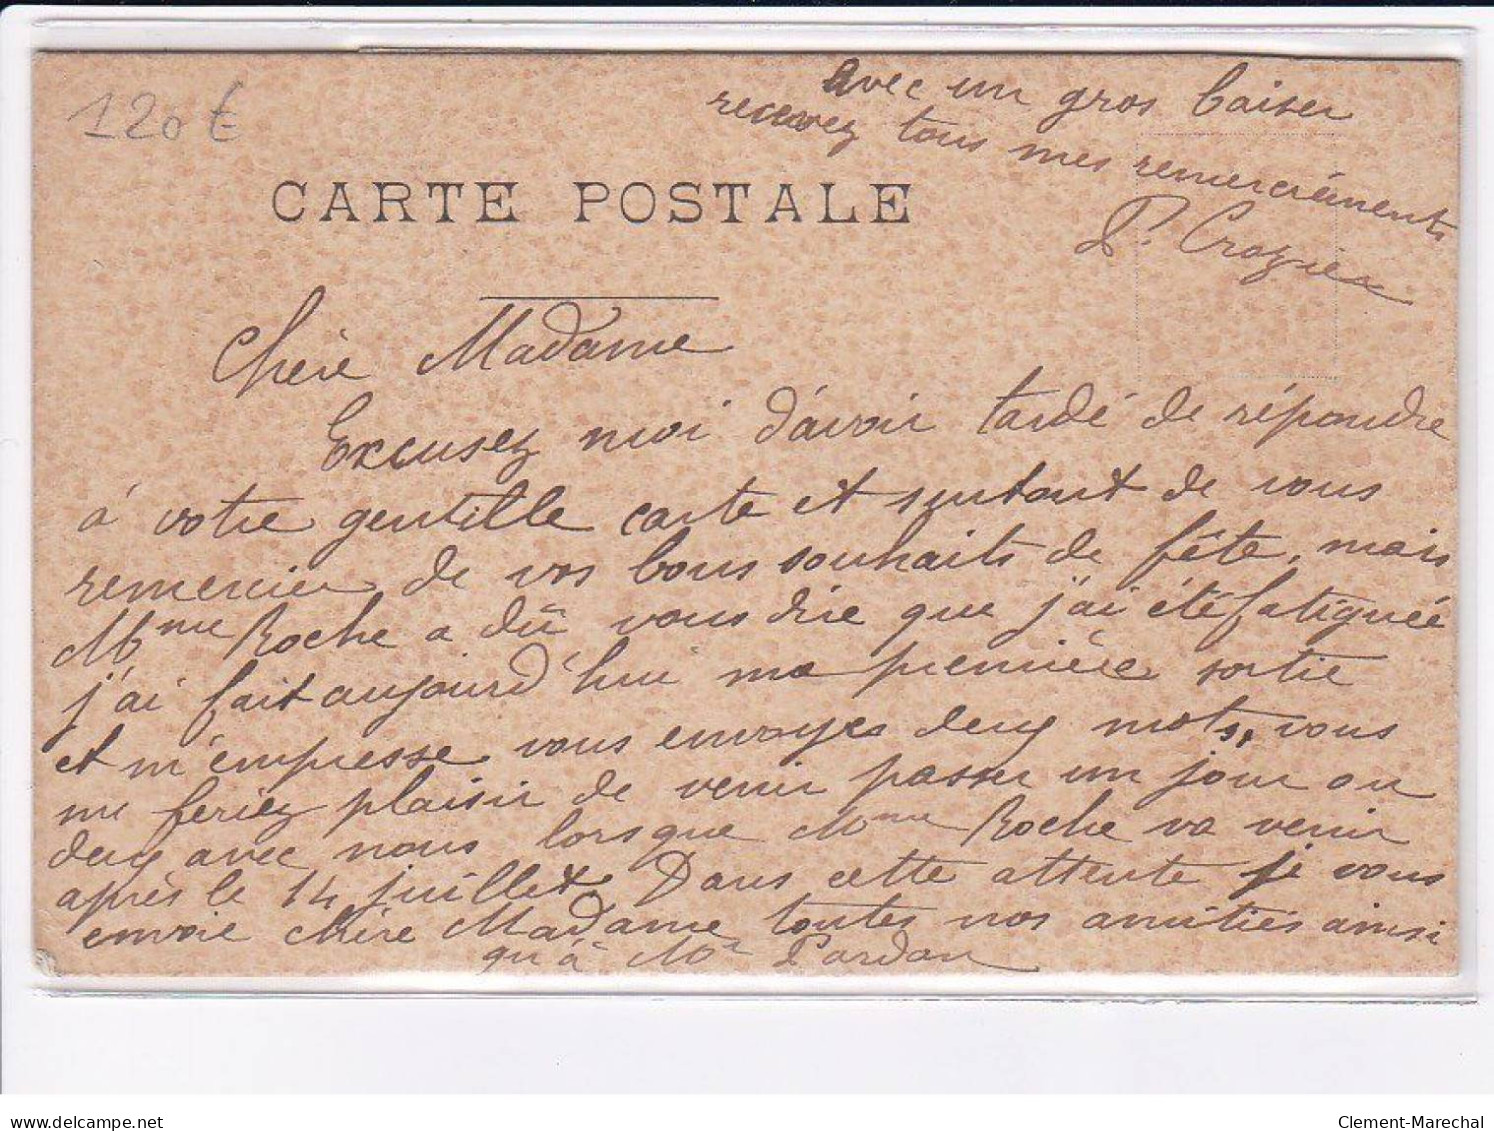 120€
avec un gros baiser
recevez tous mes remerciements
P. Crozier
CARTE POSTALE
Chère Madame
Excusez moi d'avoir tardé de répondre
à votre gentille carte et surtout de vous
remercier de vos bons souhaits de fête, mais
Mme Roche a dû vous dire que j'ai été fatiguée
j'ai fait aujourd'hui ma première sortie
et m'empresse vous envoyer deux mots, vous
me feriez plaisir de venir passer un jour ou
deux avec nous lorsque Mme Roche va venir
après le 14 juillet. Dans cette attente je vous
envoie chère Madame toutes nos amitiés ainsi
qu'à Mr Pardon
delcampe.net
Clement-Marechal